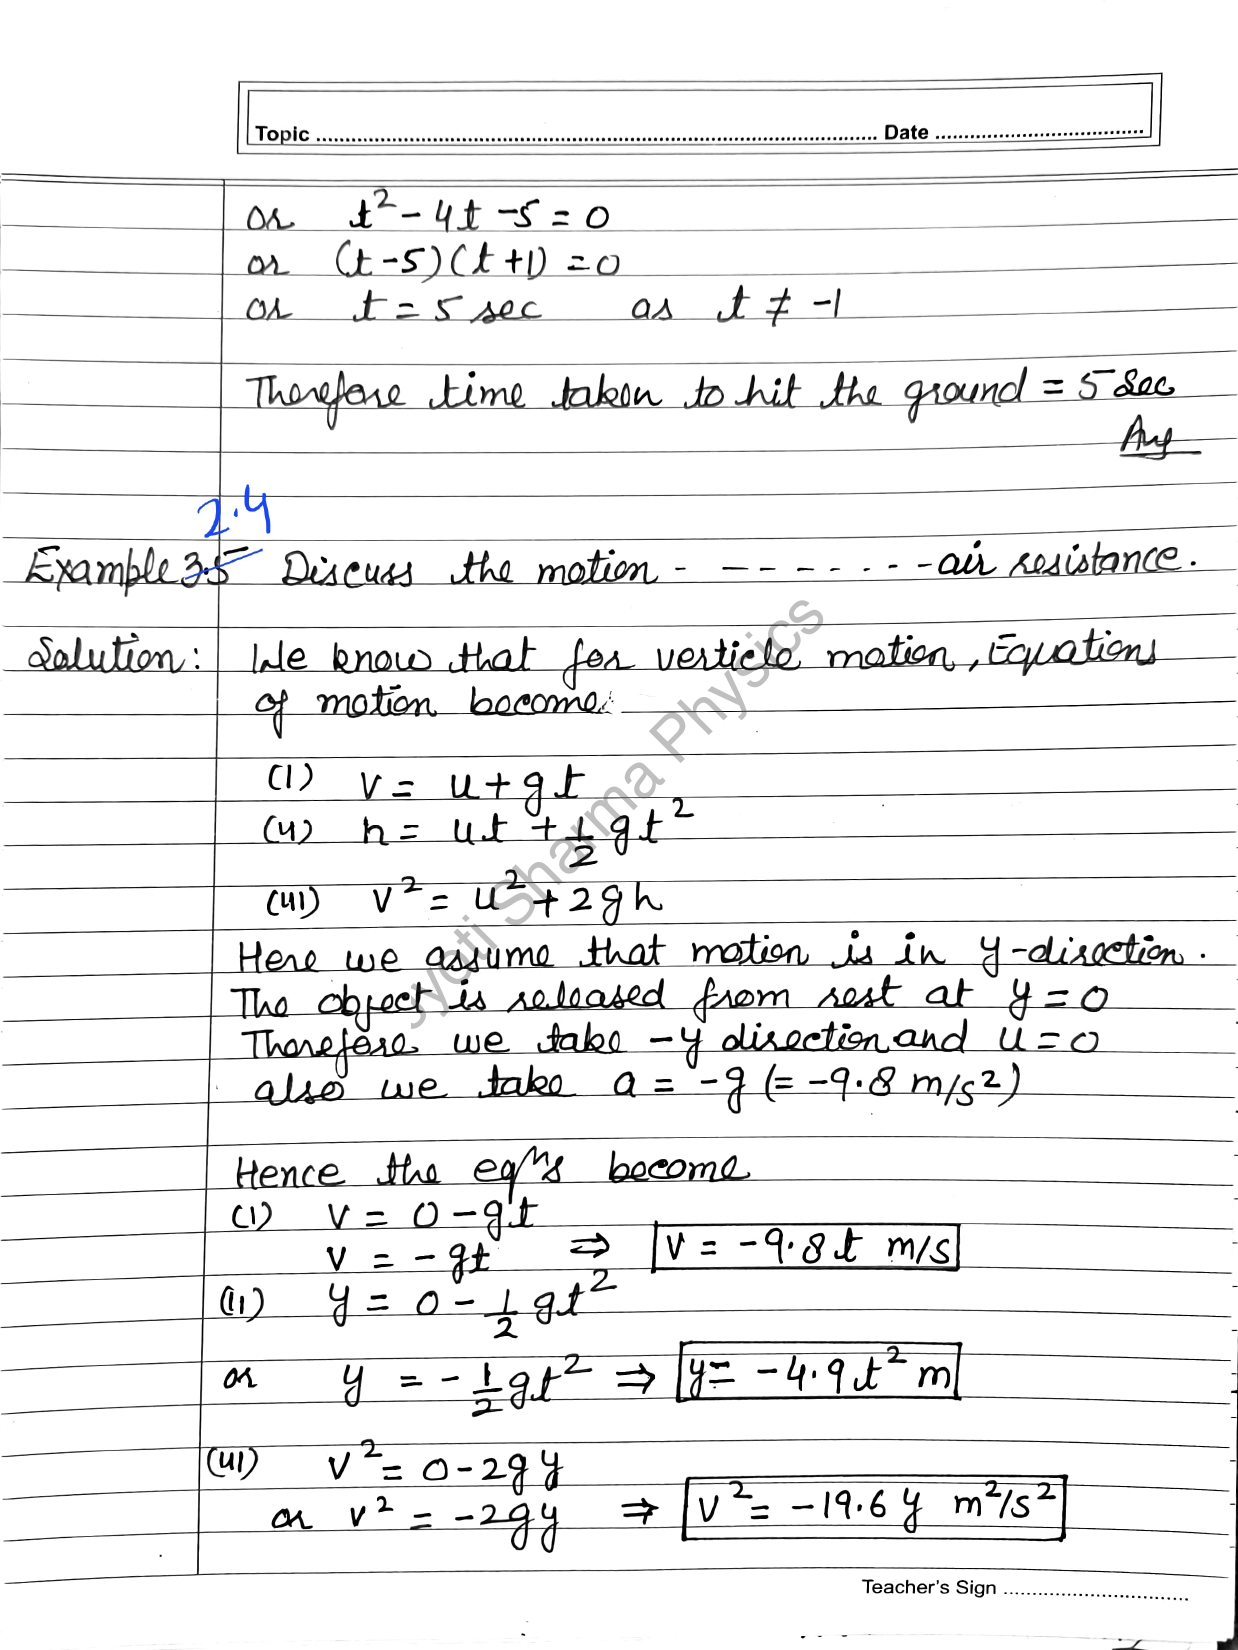 Topic ........ Date ........
or t² - 4t - 5 = 0
or (t-5)(t+1) = 0
or t = 5 sec as t ≠ -1
Therefore time taken to hit the ground = 5 sec
Ans
2.4
Example 3.5 Discuss the motion - - - - - - - - air resistance.
Solution: We know that for verticle motion, Equations
of motion become
(i) v = u + gt
(ii) h = ut + 1/2 gt²
(iii) v² = u² + 2gh
Here we assume that motion is in y-direction.
The object is released from rest at y = 0
Therefore we take -y direction and u = 0
also we take a = -g (= -9.8 m/s²)
Hence the eqⁿs become
(i) v = 0 - gt
v = -gt ⇒ v = -9.8t m/s
(ii) y = 0 - 1/2 gt²
or y = -1/2 gt² ⇒ y = -4.9t² m
(iii) v² = 0 - 2gy
or v² = -2gy ⇒ v² = -19.6 y m²/s²
Teacher's Sign ........
Jyoti Sharma Physics